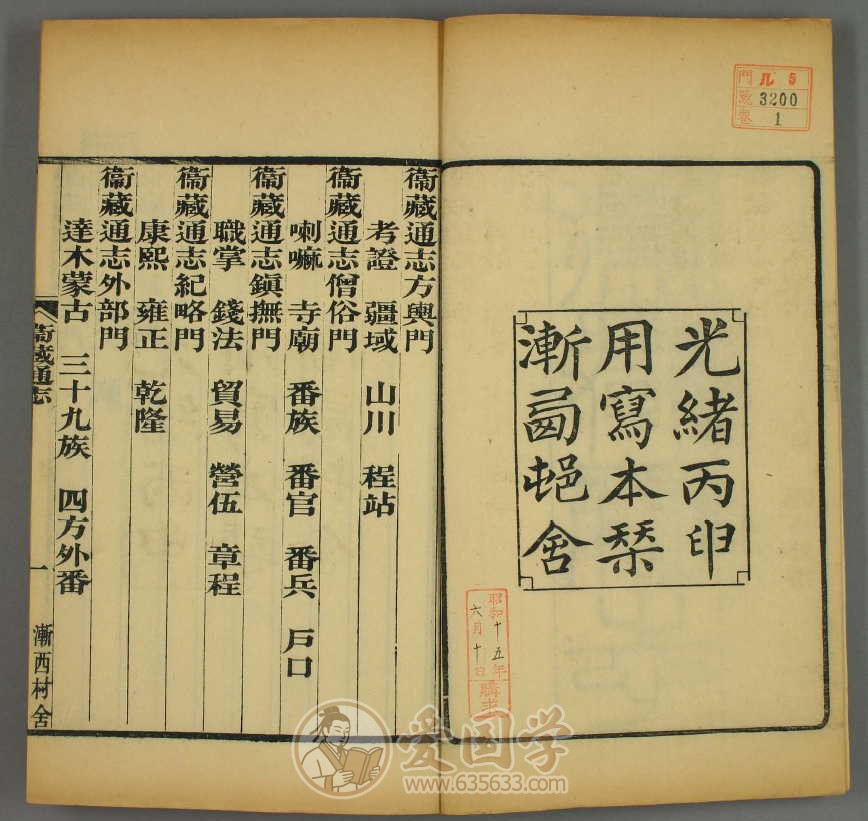 門 几 5
號 3200
卷 1
光緒丙申
用寫本栞
漸㔷邨舍
昭和十五年
六月十日
購求
衞藏通志方輿門
考證 疆域 山川 程站
衞藏通志僧俗門
喇嘛 寺廟 番族 番官 番兵 戶口
衞藏通志鎭撫門
職掌 錢法 貿易 營伍 章程
衞藏通志紀略門
康熙 雍正 乾隆
衞藏通志外部門
達木蒙古 三十九族 四方外番
衞藏通志 一 漸西村舍
爱国学
www.635633.com